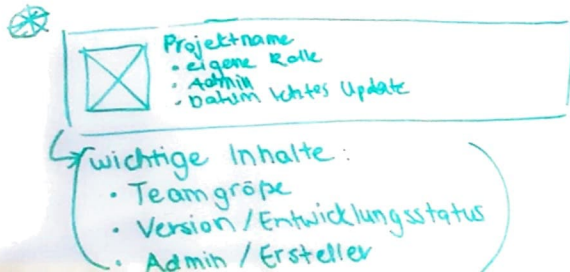 Projektname
• eigene Rolle
• Admin
• Datum letztes Update
wichtige Inhalte:
• Teamgröße
• Version/Entwicklungsstatus
• Admin/Ersteller